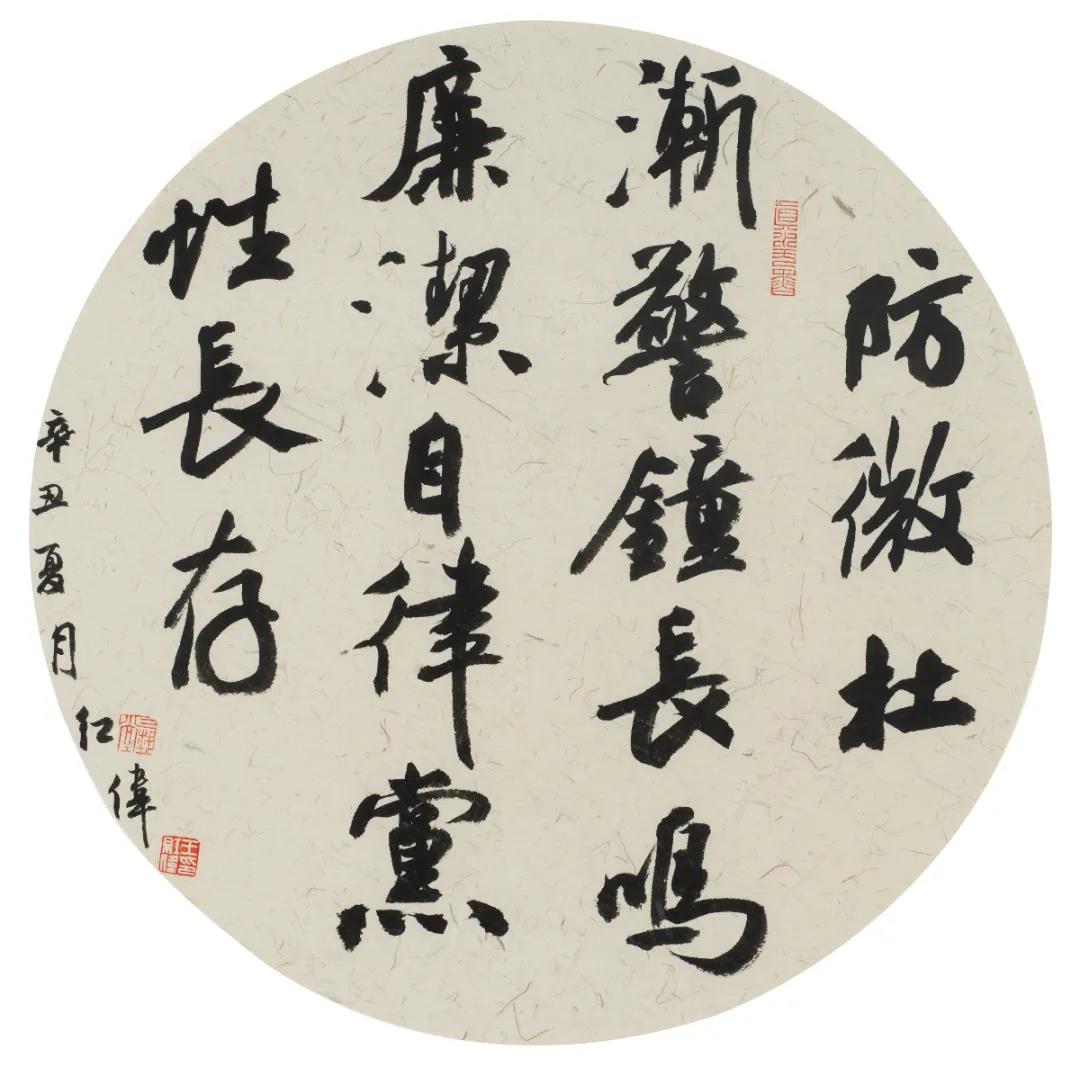 防微杜
漸警鐘長鳴
廉潔自律黨
性長存
辛丑夏月紅偉